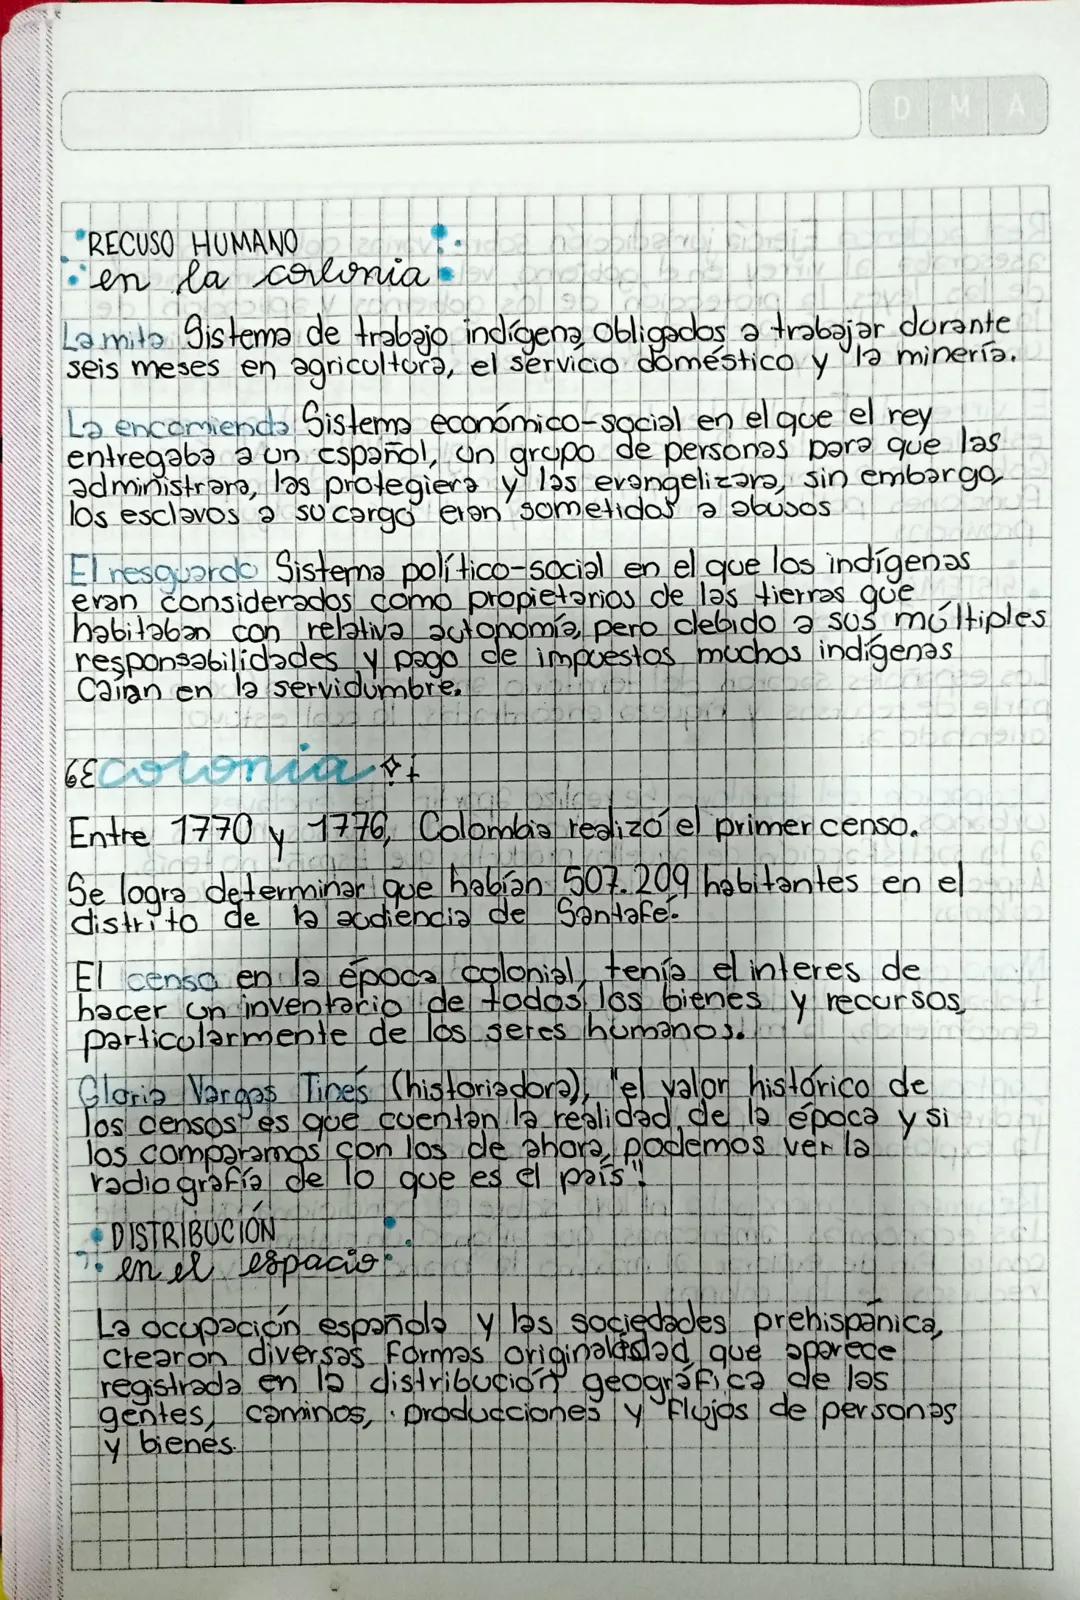 D M A
RECUSO HUMANO
en la colonia
La mita Sistema de trabajo indígena, obligados a trabajar durante
seis meses en agricultura, el servicio doméstico y la minería.
La encomienda Sistema económico-social en el que el rey
entregaba a un español, un grupo de personas para que las
administrara, las protegiera y las evangelizara, sin embargo,
los esclavos a su cargo eran sometidos a abusos
El resguardo Sistema político-social en el que los indígenas
eran considerados como propietarios de las tierras que
habitaban con relativa autonomía, pero debido a sus múltiples
responsabilidades y pago de impuestos muchos indígenas
Caían en la servidumbre.
colonia
Entre 1770 y 1776, Colombia realizó el primer censo.
Se logra determinar que habían 507.209 habitantes en el
distrito de la audiencia de Santafé.
El censo en la época colonial, tenía el interes de
hacer un inventario de todos los bienes y recursos,
particularmente de los seres humanos.
Gloria Vargas Tines (historiadora), "el valor histórico de
los censos es que cuentan la realidad de la época y si
los comparamos con los de ahora, podemos ver la
radiografía de lo que es el país".
DISTRIBUCIÓN
en el espacio
La ocupación española y las sociedades prehispánica,
crearon diversas formas que aparece
registrada en la distribución geográfica de las
gentes, caminos, producciones y flujos de personas
y bienes.